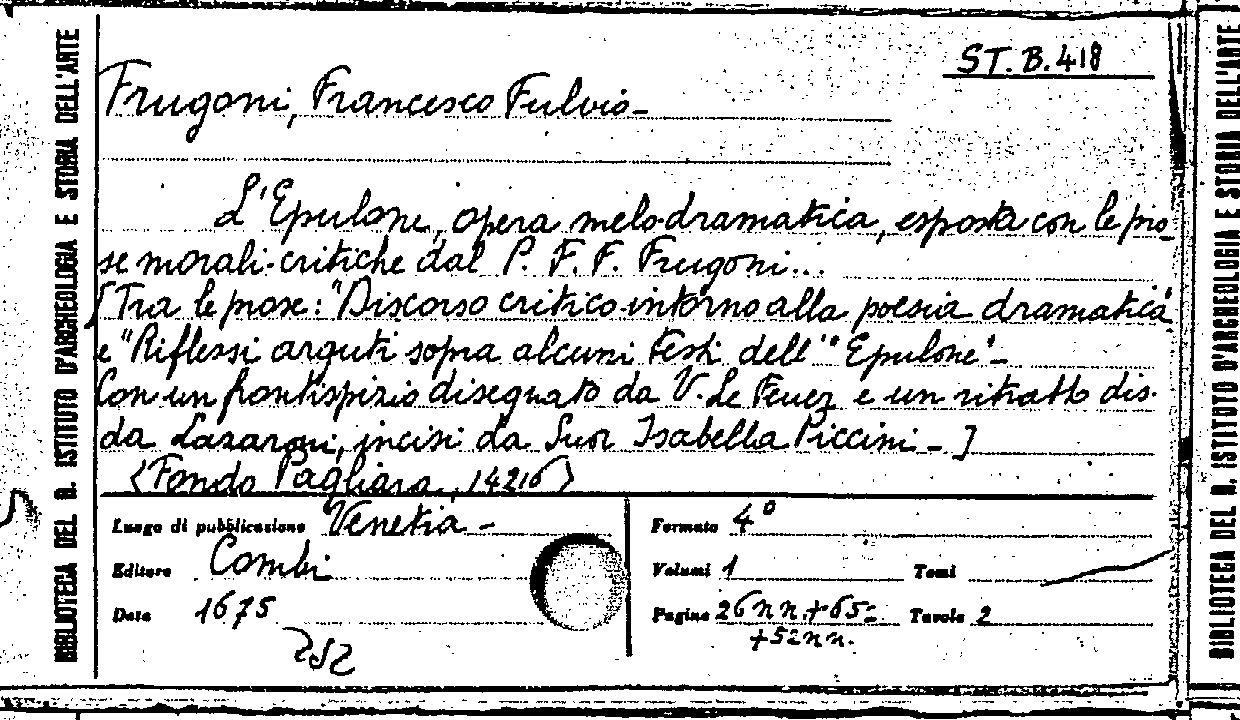 ST. B. 418
Frugoni, Francesco Fulvio-
L'Epulone, opera melodramatica, esposta con le pro-
se morali-critiche dal P. F. F. Frugoni...
[Tra le prose: "Discorso critico intorno alla poesia dramatica"
e "Riflessi arguti sopra alcuni testi dell'"Epulone"-
Con un frontispizio disegnato da V. Le Feuez e un ritratto dis.
da Lazaroni, incisi da Suor Isabella Piccini-]
<Fondo Pagliara, 14216>
Luogo di pubblicazione Venetia-
Editore Combi
Data 1675
252
Formato 4°
Volumi 1 Tomi
Pagine 26nn.+65= Tavole 2
+52nn.
BIBLIOTECA DEL R. ISTITUTO D'ARCHEOLOGIA E STORIA DELL'ARTE
BIBLIOTECA DEL R. ISTITUTO D'ARCHEOLOGIA E STORIA DELL'ARTE